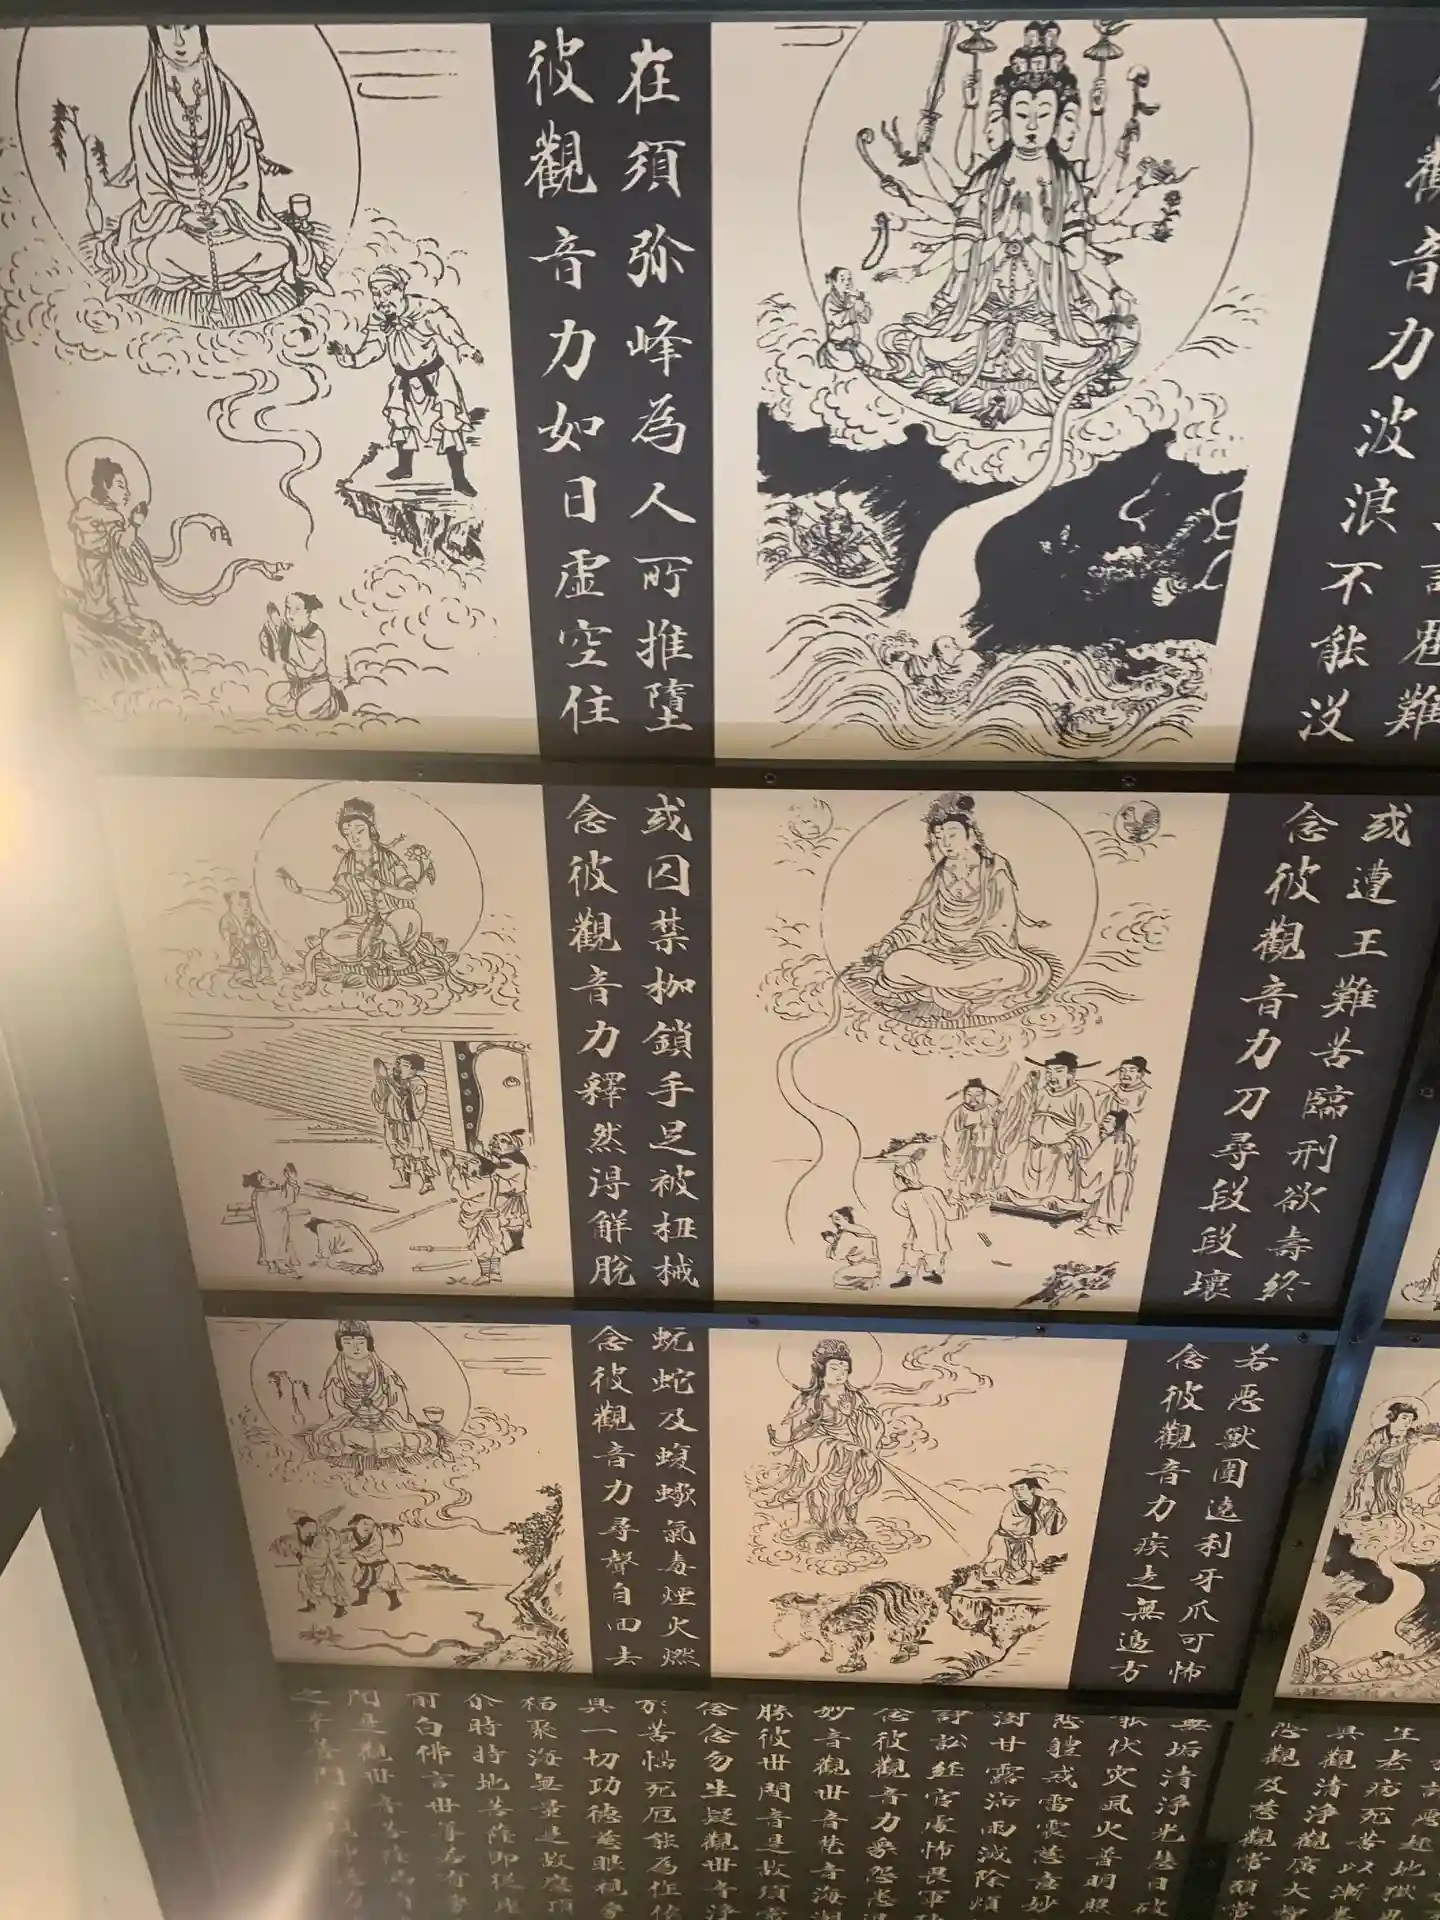 在須弥峰為人所推墮
彼觀音力如日虛空住
觀音力波浪不能沒
難
或囚禁枷鎖手足被杻械
念彼觀音力釋然得解脫
或遭王難苦臨刑欲壽終
念彼觀音力刀尋段段壞
蚖蛇及蝮蠍氣毒煙火燃
念彼觀音力尋聲自回去
若惡獸圍遶利牙爪可怖
念彼觀音力疾走無邊方
生老病死苦以漸
真觀清淨觀廣大智
悲觀及慈觀常願常
無垢清淨光慧日破
能伏災風火普明照
悲體戒雷震慈意妙
澍甘露法雨滅除煩
諍訟經官處怖畏軍
念彼觀音力眾怨悉退
妙音觀世音梵音海潮
勝彼世間音是故須常
念念勿生疑觀世音淨
於苦惱死厄能為作依
具一切功德慈眼視眾
福聚海無量是故應頂
尒時持地菩薩即從
前白佛言世尊若有眾